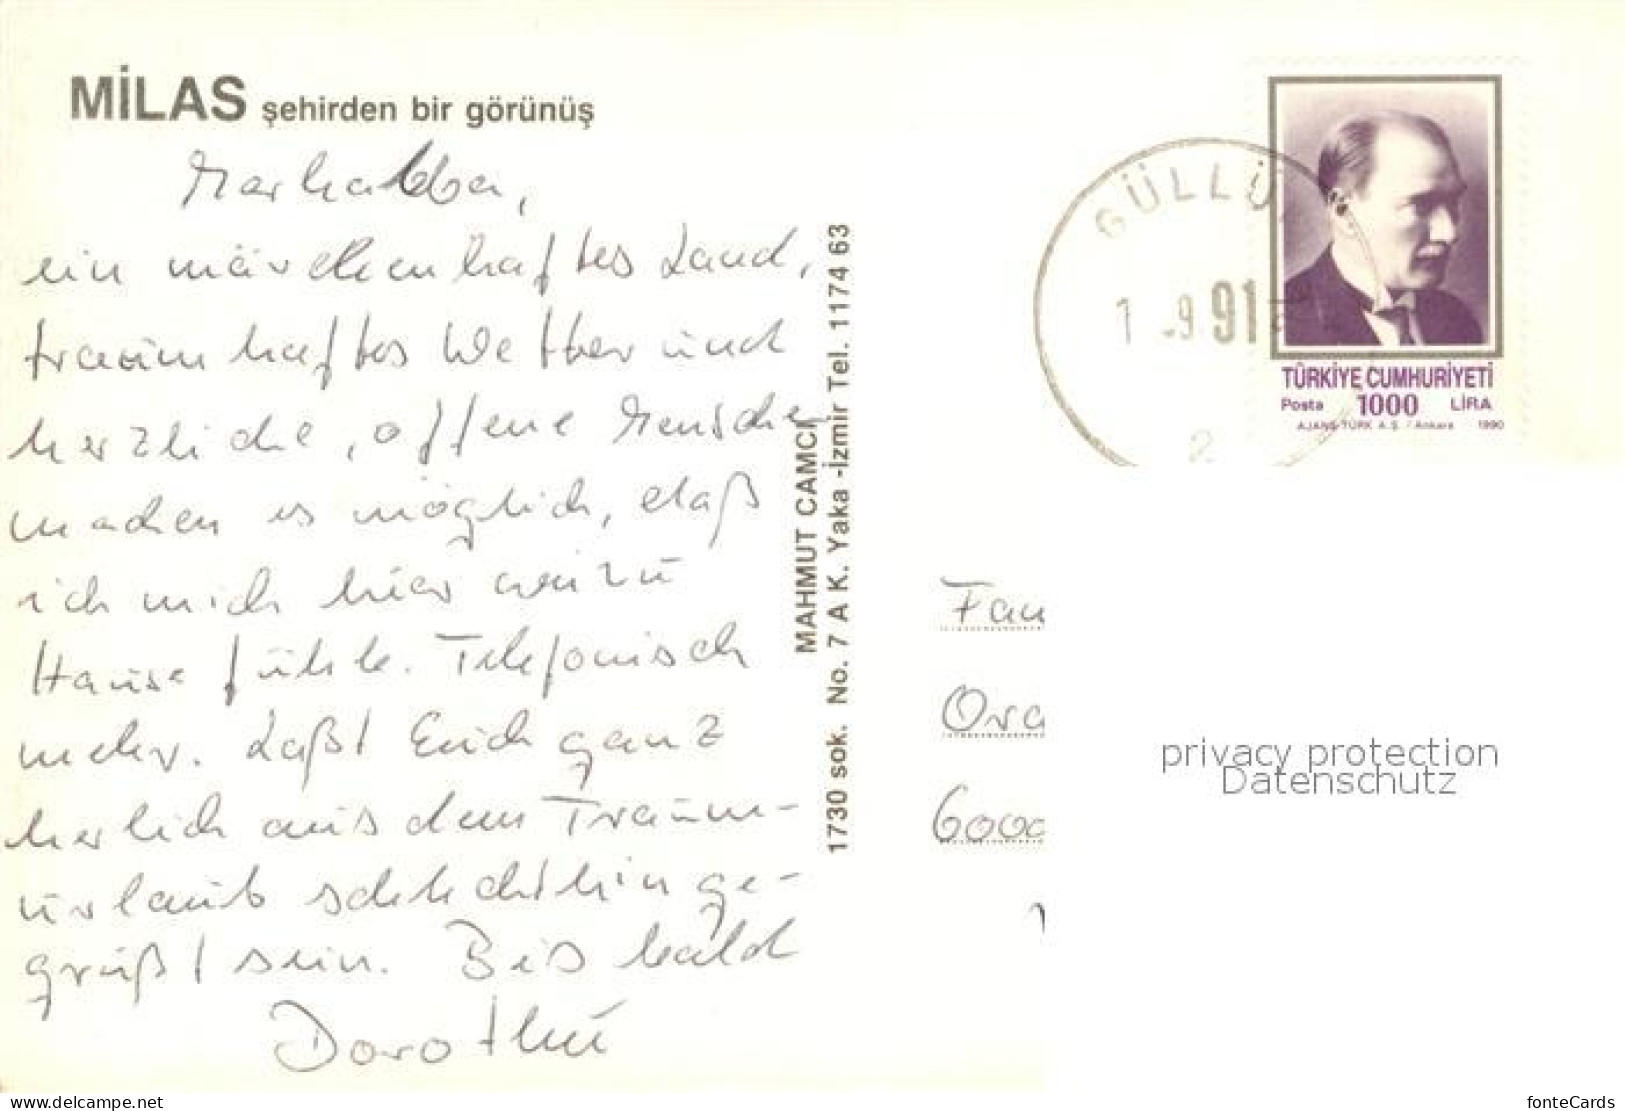 MİLAS şehirden bir görünüş
Marhabba,
ein märchenhaftes Land,
traumhaftes Wetter und
herzliche, offene Menschen
machen es möglich, daß
ich mich hier wie zu
Hause fühle. Telefonisch
mehr. Laßt Euch ganz
herlich aus dem Traum-
urlaub schlechthin ge-
grüßt sein. Bis bald
MAHMUT CAMCI
1730 sok. No. 7 A K. Yaka -İzmir Tel. 1174 63
GÜLLÜ
1 .9 91
2
TÜRKİYE CUMHURİYETİ
Posta 1000 LİRA
AJANS-TÜRK A.Ş. / Ankara 1990
Fam
Ora
6000
privacy protection
Datenschutz
www.delcampe.net
fonteCards